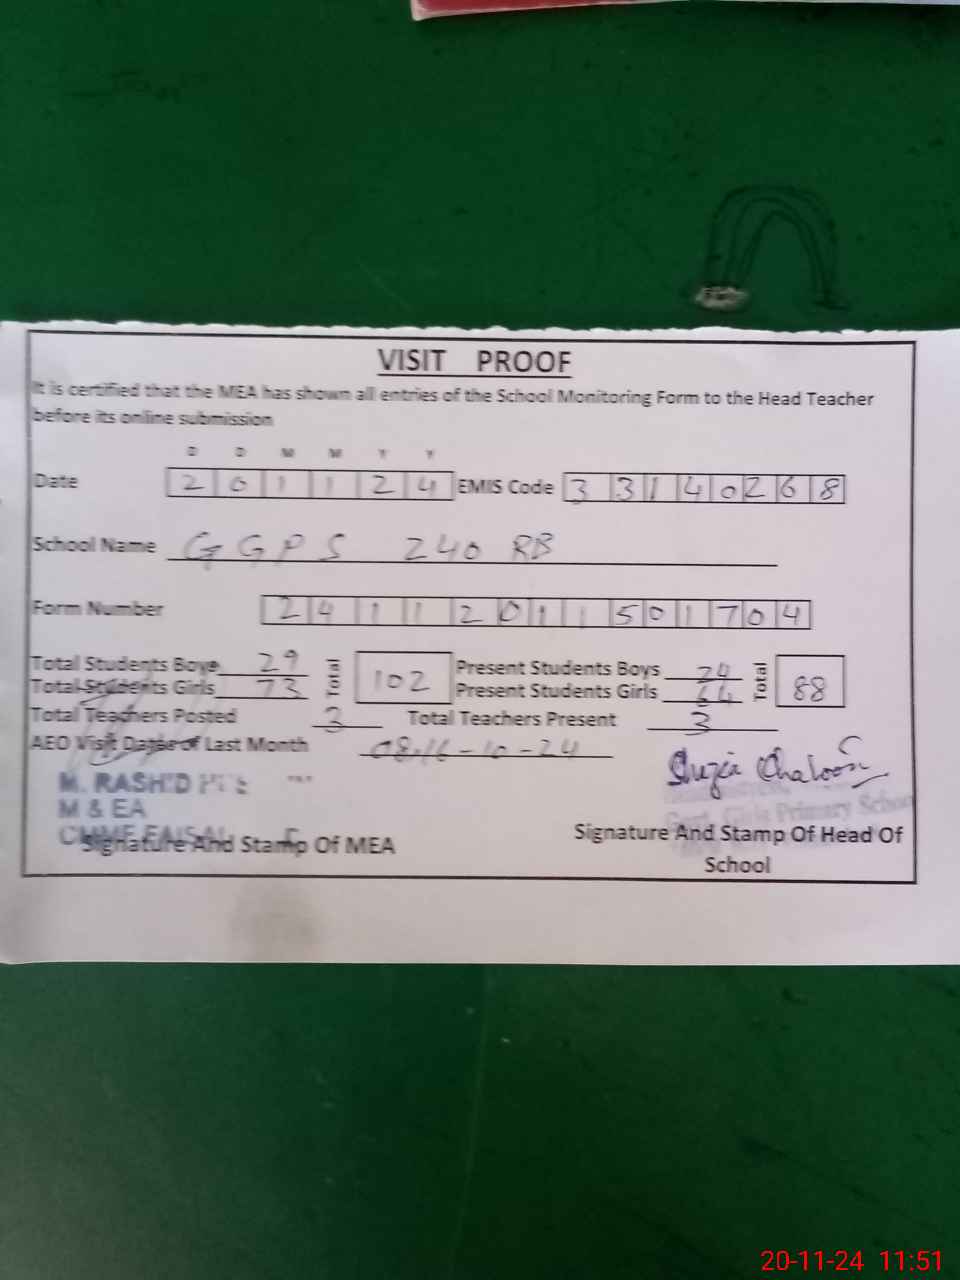 VISIT PROOF
It is certified that the MEA has shown all entries of the School Monitoring Form to the Head Teacher
before its online submission
D D M M Y Y
Date 2 0 1 1 2 4 EMIS Code 3 3 1 4 0 2 6 8
School Name G G P S 240 RB
Form Number 2 4 1 1 2 0 1 1 5 0 1 7 0 4
Total Students Boys 29 Total 102 Present Students Boys 24 Total 88
Total Students Girls 73 Present Students Girls 64
Total Teachers Posted 3 Total Teachers Present 3
AEO Visit Dates of Last Month 08,16-10-24
M. RASHID
M & EA
CMMF FAISAL
Govt. Girls Primary School
Signature And Stamp Of MEA
Signature And Stamp Of Head Of
School
20-11-24 11:51